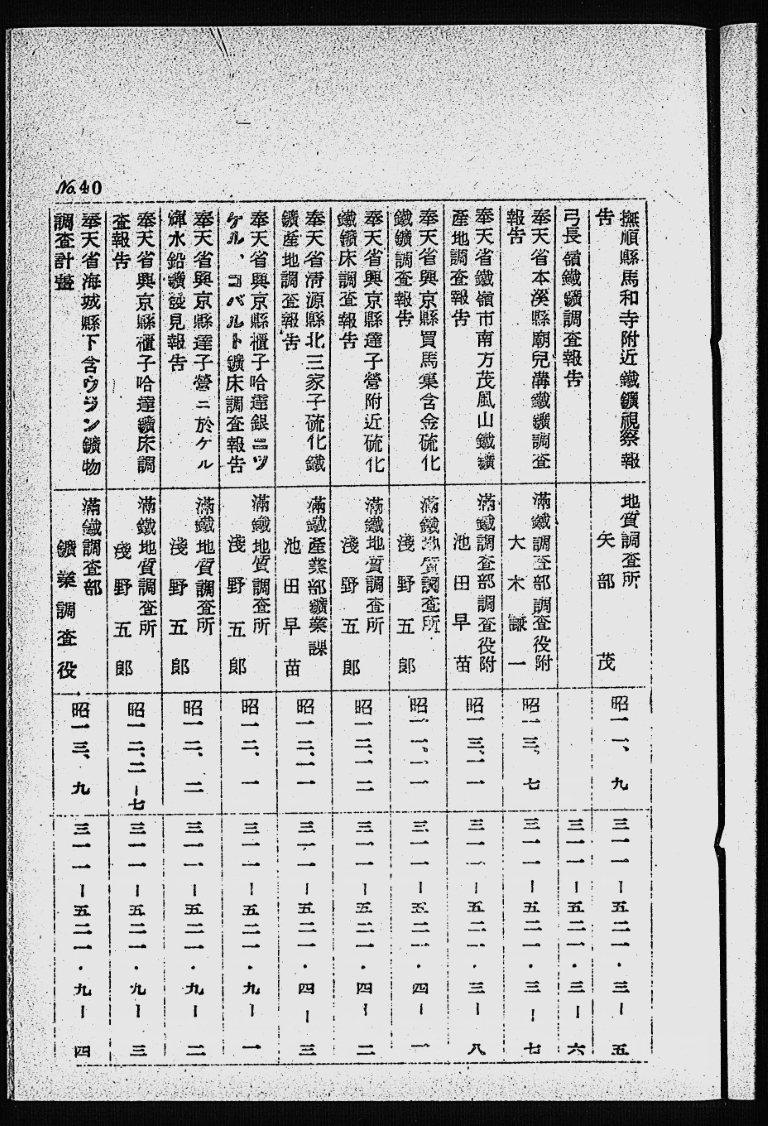 No.40
撫順縣馬和寺附近鐵鑛視察報
告
地質調査所
矢部茂
昭一一、九
三一一ー五二一・三ー五
弓長嶺鐵鑛調査報告
三一一ー五二一・三ー六
奉天省本溪縣廟兒溝鐵鑛調査
報告
滿鐵調査部調査役附
大木謙一
昭一三、七
三一一ー五二一・三ー七
奉天省鐵嶺市南方茂風山鐵鑛
產地調査報告
滿鐵調査部調査役附
池田早苗
昭一三、一一
三一一ー五二一・三ー八
奉天省興京縣買馬集含金硫化
鐵鑛調査報告
滿鐵地質調査所
淺野五郎
昭一一、一一
三一一ー五二一・四ー一
奉天省興京縣達子營附近硫化
鐵鑛床調査報告
滿鐵地質調査所
淺野五郎
昭一二、一二
三一一ー五二一・四ー二
奉天省淸源縣北三家子硫化鐵
鑛產地調査報告
滿鐵產業部鑛業課
池田早苗
昭一二、一一
三一一ー五二一・四ー三
奉天省興京縣櫃子哈達銀ニッ
ケル、コバルト鑛床調査報告
滿鐵地質調査所
淺野五郎
昭一二、一
三一一ー五二一・九ー一
奉天省興京縣達子營ニ於ケル
輝水鉛鑛發見報告
滿鐵地質調査所
淺野五郎
昭一二、二
三一一ー五二一・九ー二
奉天省興京縣櫃子哈達鑛床調
査報告
滿鐵地質調査所
淺野五郎
昭一二、二ー七
三一一ー五二一・九ー三
奉天省海城縣下含ウラン鑛物
調査計畫
滿鐵調査部
鑛業調査役
昭一三、九
三一一ー五二一・九ー四